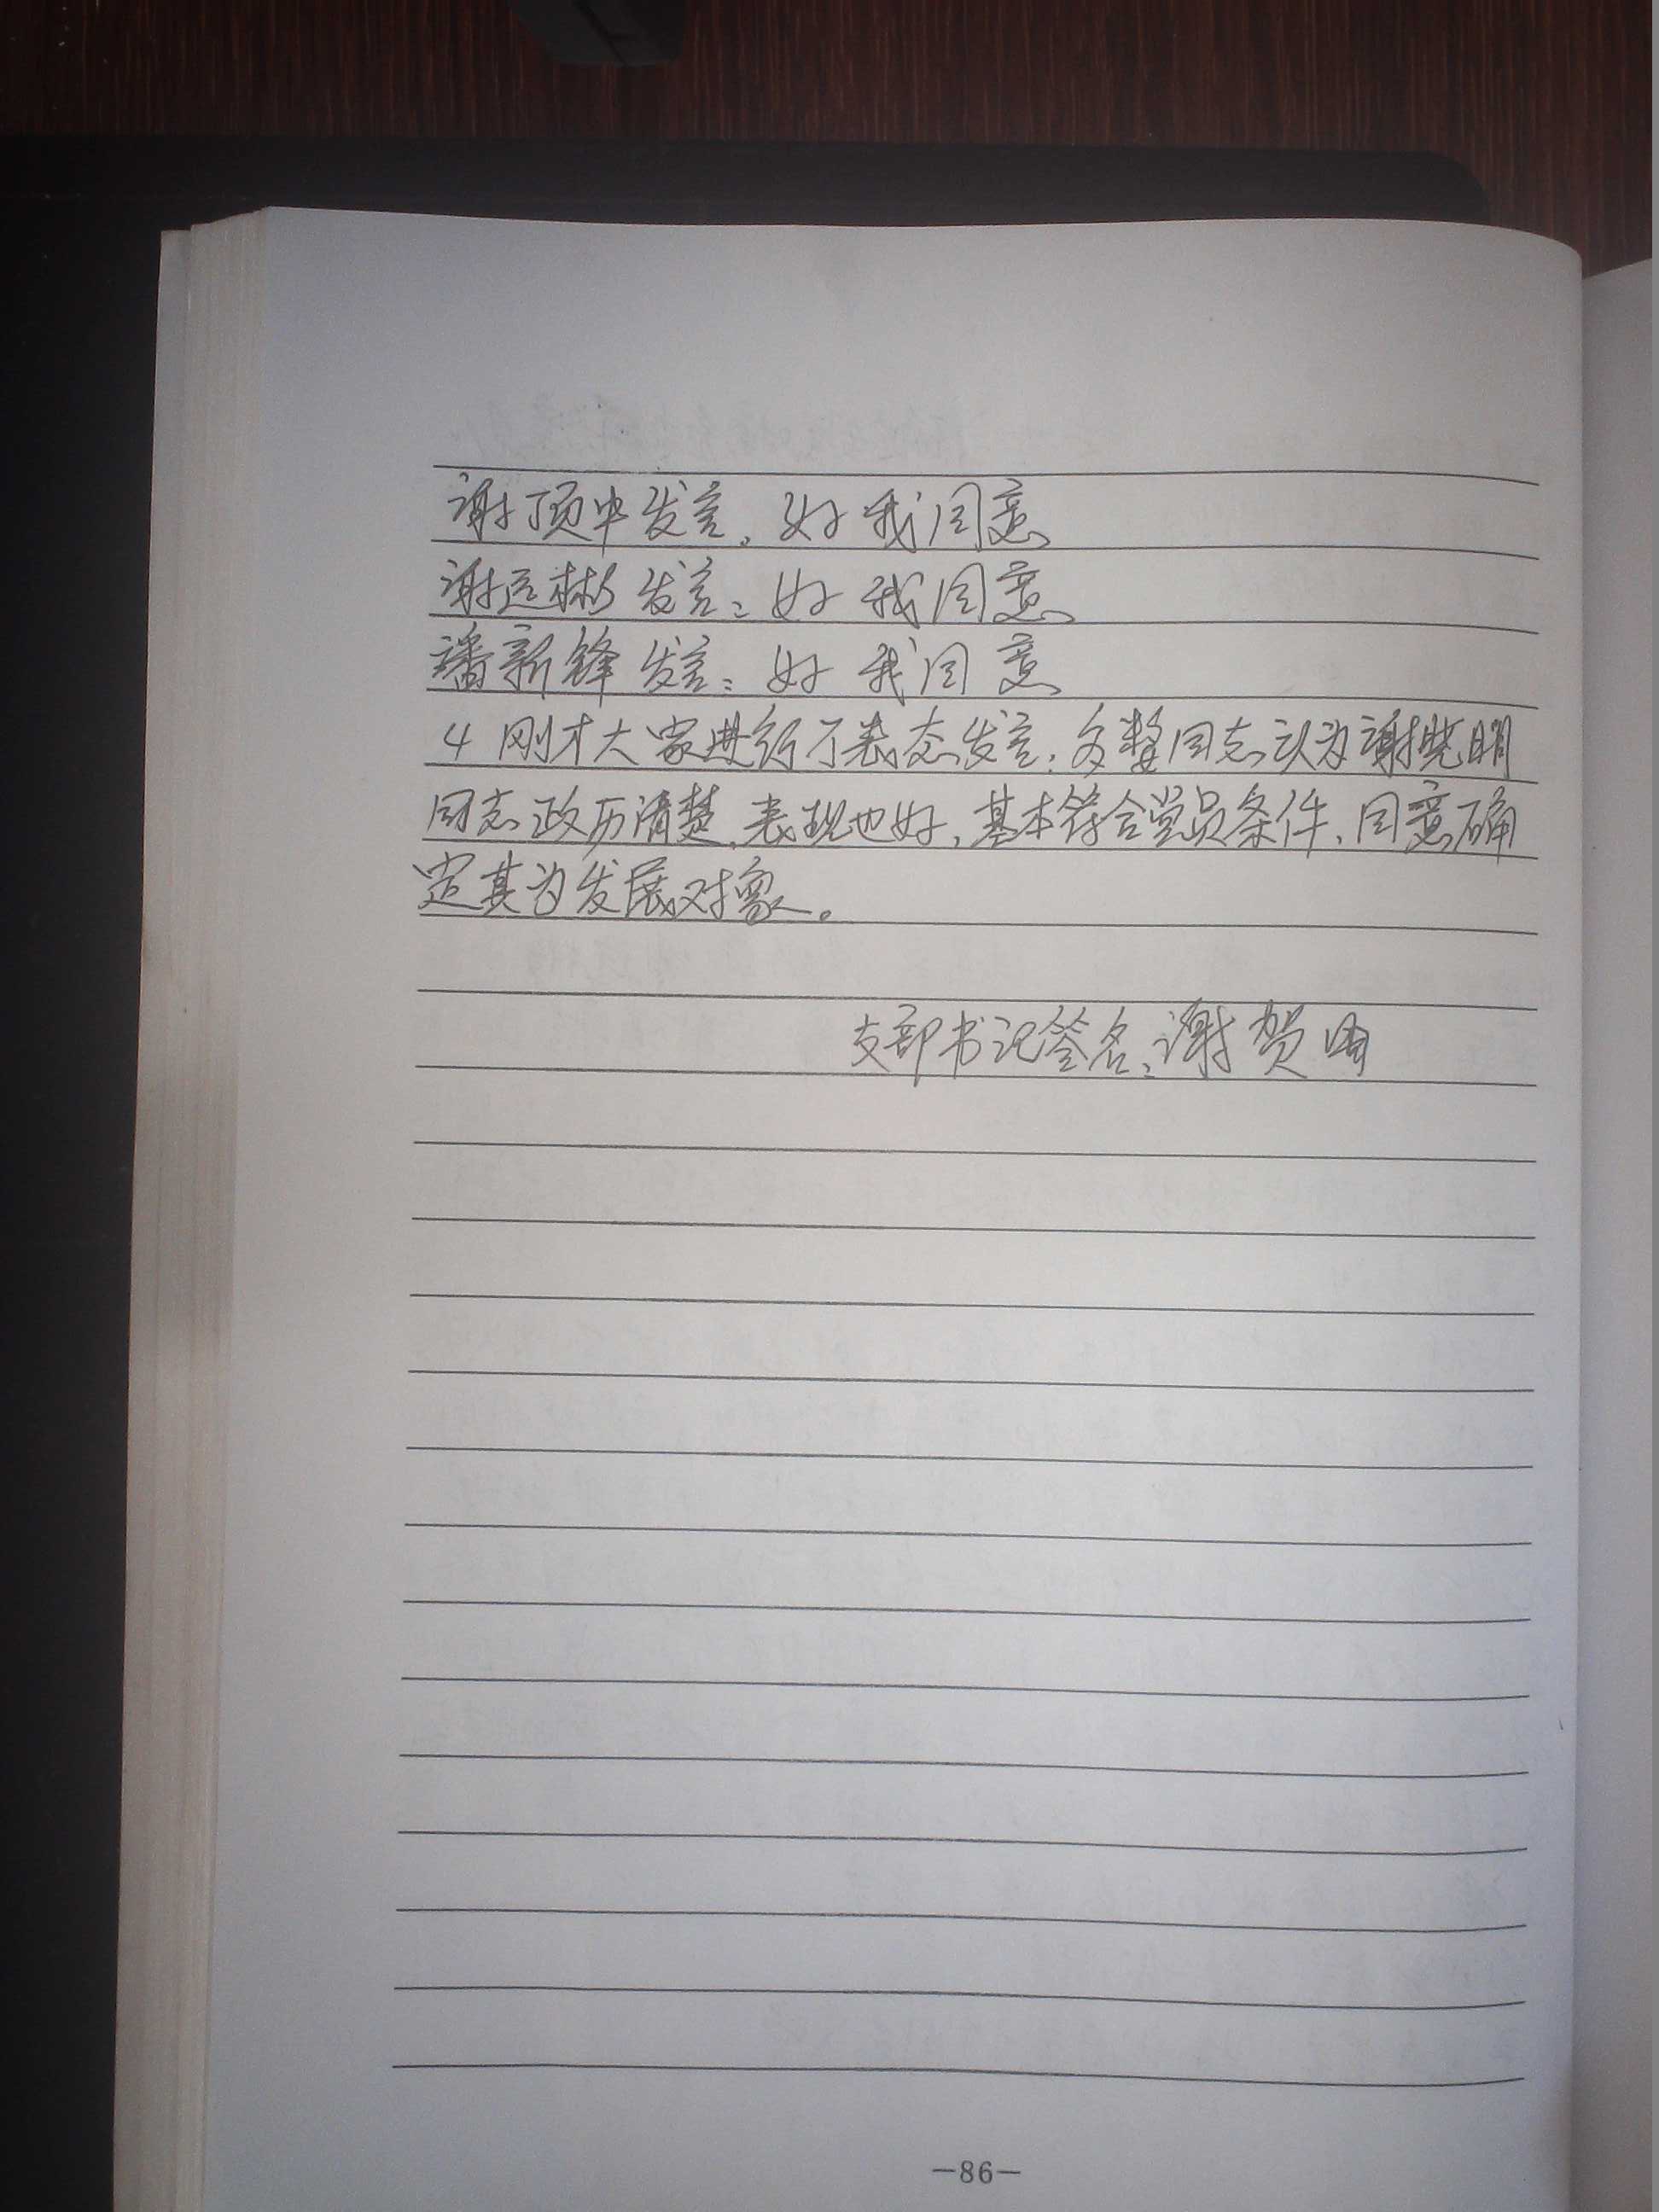 谢顶中发言:好 我同意
谢运彬发言:好 我同意
潘新锋发言:好 我同意
4 刚才大家进行了表态发言:多数同志认为谢晓明
同志政历清楚,表现也好,基本符合党员条件,同意确
定其为发展对象。
支部书记签名:谢贺
—86—